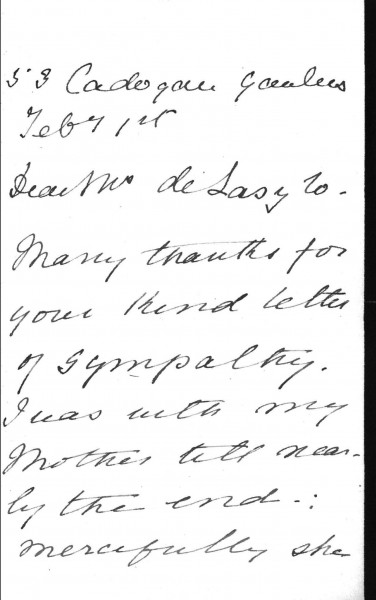 53 Cadogan Gardens
Feby 1st
Dear Mrs de Lasy
Many thanks for
your kind letter
of sympathy.
I was with my
Mother till near-
ly the end -:
mercifully she